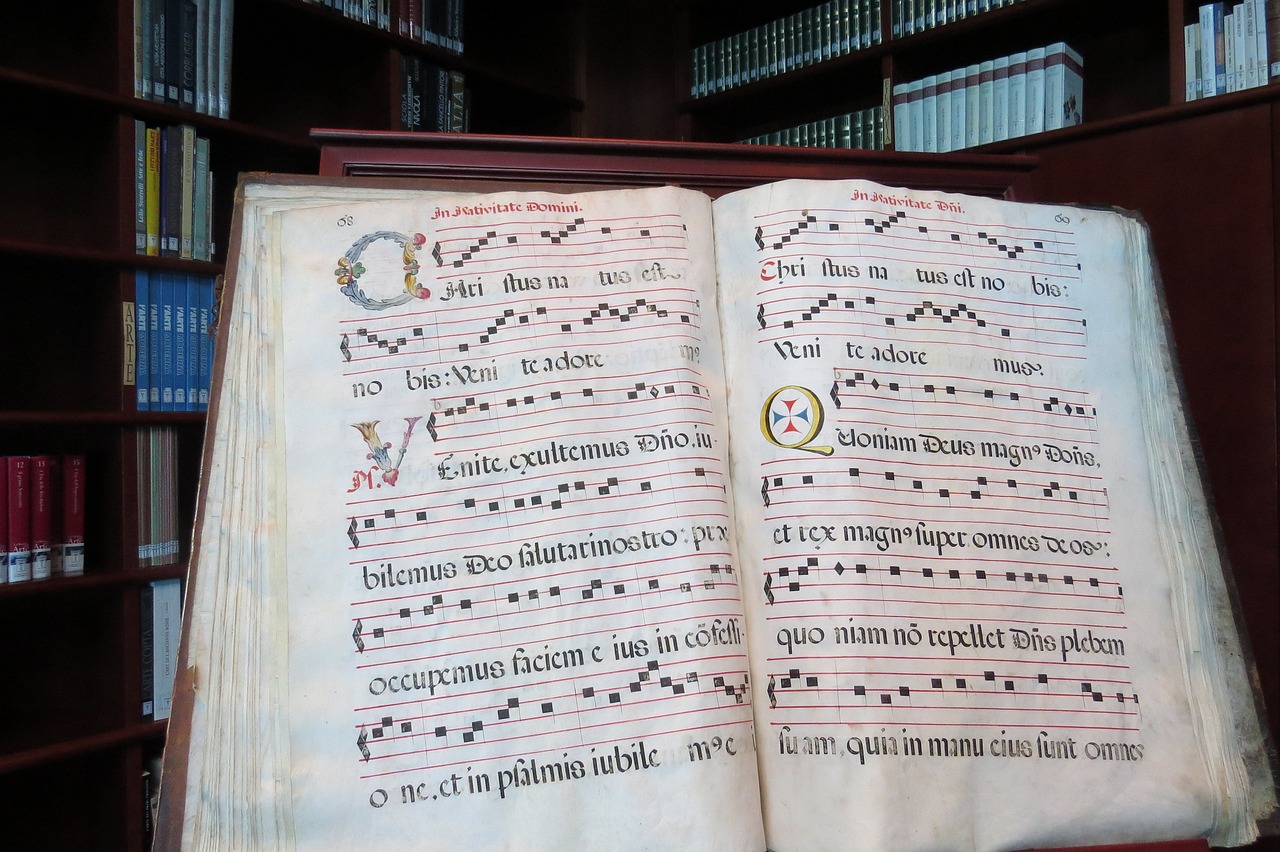 68
In Nativitate Domini.
CHri stus na tus est
no bis: Veni te adore m9
Ps. VEnite, exultemus Dño, iu-
bilemus Deo salutari nostro: præ
occupemus faciem e ius in cõfessi-
o ne, et in psalmis iubile m9 e
In Nativitate Dñi.
69
Chri stus na tus est no bis:
Veni te adore mus.
Quoniam Deus magn9 Doñs,
et rex magn9 super omnes deos:
quo niam nõ repellet Dñs plebem
suam, quia in manu eius sunt omnes
ARTE
L'ARTE
L'ARTE
L'ARTE
L'ARTE
L'ARTE